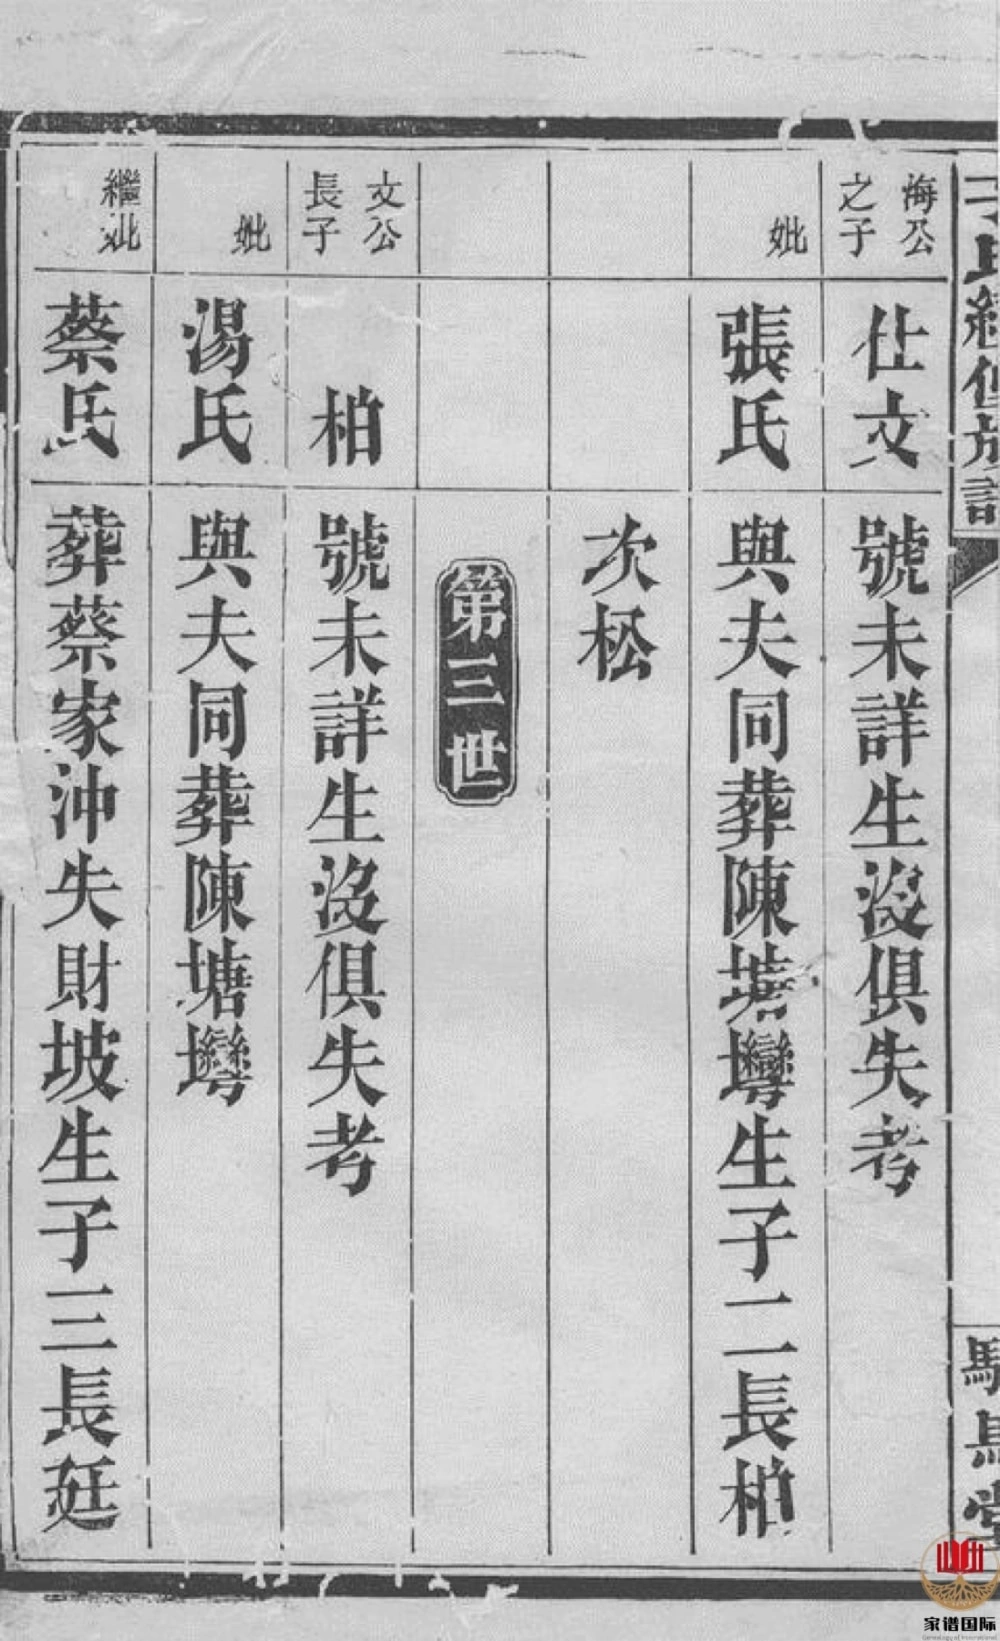 氏續修族譜
駟馬堂
海公之子
仕文
號未詳生沒俱失考
妣
張氏
與夫同葬陳塘灣生子二長柏
次松
第三世
文公長子
柏
號未詳生沒俱失考
妣
湯氏
與夫同葬陳塘灣
繼妣
蔡氏
葬蔡家沖失財坡生子三長廷
家谱国际
Genealogy of International